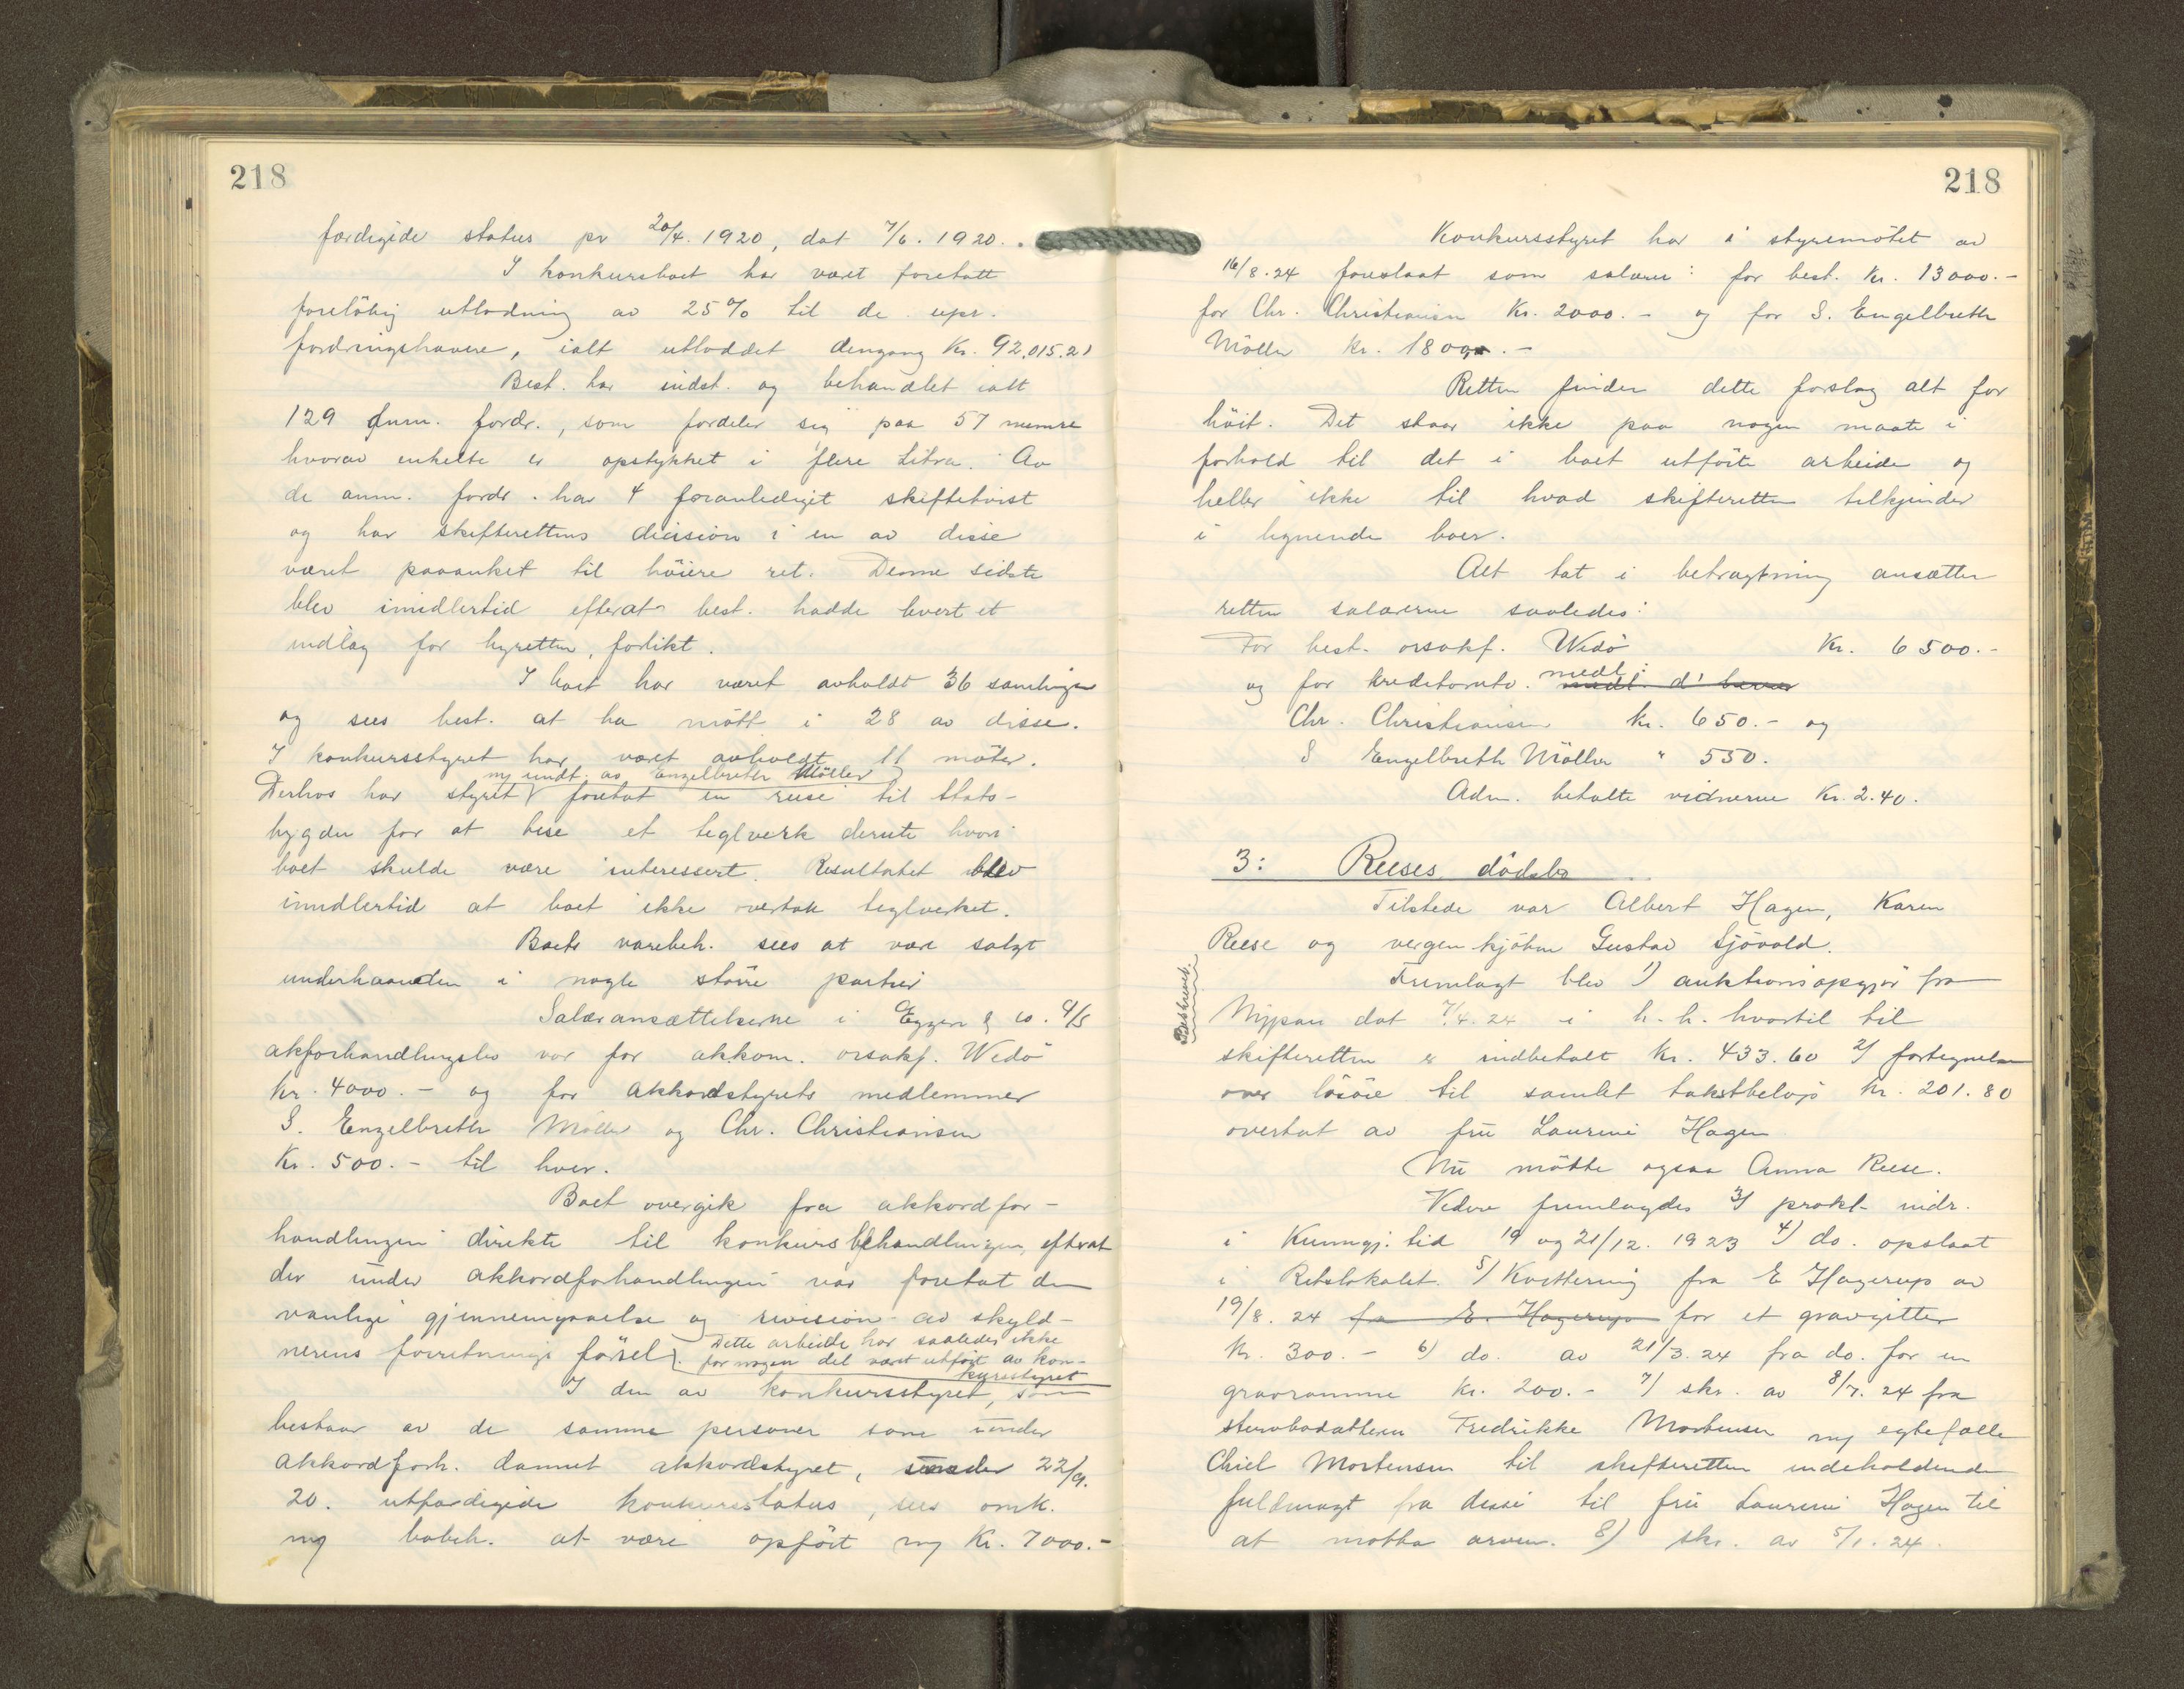 218
færdigede status pr 20/4. 1920, dat 7/6. 1920.
I konkursboet har været foretatt
foreløbig utlodning av 25% til de upr.
fordringshavere, ialt utloddet dengang Kr. 92,015.21
Best. har indst. og behandlet ialt
129 anm. fordr., som fordeler sig paa 57 numre
hvorav enkelte er opstykket i flere Litra. Av
de anm. fordr. har 4 foranlediget skiftetvist
og har skifterettens decision i en av disse
været paaanket til høiere ret. Denne sidste
blev imidlertid efterat best. hadde levert et
indlæg for lyretten, forlikt.
I boet har været avholdt 36 samlinger
og sees best. at ha møtt i 28 av disse.
I konkursstyret har været avholdt 11 møter.
m undt. av Engelbreth Møller
Derhos har styret foretat en reise til Stads-
bygden for at bese et teglverk derute hvori
boet skulde være interessert. Resultatet blev
imidlertid at boet ikke overtok teglverket.
Boets varebeh. sees at være solgt
underhaanden i nogle større partier
Salæransættelserne i Eggen & co. a/s
akforhandlingsbo var for akkom. orsakf. Wedø
kr. 4000.- og for akkordstyrets medlemmer
S. Engelbreth Møller og Chr. Christiansen
Kr. 500.- til hver.
Boet overgik fra akkordfor-
handlingen direkte til konkursbehandlingen, efterat
der under akkordforhandlingen var foretat den
vanlige gjennemgaaelse og revision av skyld-
nerens forretnings førsel. Dette arbeide har saaledes ikke
for nogen del været utført av kon-
kursstyret
I den av konkursstyret, som
bestaar av de samme personer som under
akkordforh. dannet akkordstyret, under 22/9.
20. utfærdigede konkursstatus, sees omk.
m bobeh. at være opført m Kr. 7000.-
218
Konkursstyret har i styremøtet av
16/8.24 foreslaat som salærer: for best. Kr. 13000.-
for Chr. Christiansen Kr. 2000.- og for S. Engelbreth
Møller kr. 1800.-
Retten finder dette forslag alt for
høit. Det staar ikke paa nogen maate i
forhold til det i boet utførte arbeide og
heller ikke til hvad skifteretten tilkjender
i lignende boer.
Alt tat i betragtning ansætter
retten salærerne saaledes:
For best. orsakf. Wedø Kr. 6500.-
og for kreditorutv. medl.:
Chr. Christiansen kr. 650.- og
S Engelbreth Møller " 550.
Adm. betalte vidnerne Kr. 2.40.
3: Reeses dødsbo
Tilstede var Albert Hagen, Karen
Reese og vergen kjøbm Gustav Sjøvold.
Beskrevet.
Fremlagt blev 1) auktionsopgjør fra
Nypan dat 7/4.24 i h.h. hvortil til
skifteretten er indbetalt kr. 433.60 2) fortegnelse
over løsøre til samlet takstbeløp kr. 201.80
overtat av fru Laurine Hagen
Nu møtte ogsaa Anna Reese.
Videre fremlagdes 3) prokl. indr.
i Kunngj. tid 19 og 21/12. 1923 4) do. opslaat
i Retslokalet. 5) Kvittering fra E Hagerup av
19/8. 24 fra E. Hagerup for et gravgitter
kr. 300.- 6) do. av 21/3.24 fra do. for en
gravramme kr. 200.- 7) skr. av 8/7. 24 fra
stervbodatteren Fredrikke Mortensen m egtefælle
Chiel Mortensen til skifteretten indeholdende
fuldmagt fra disse til fru Laurine Hagen til
at motta arven. 8) skr. av 5/1.24